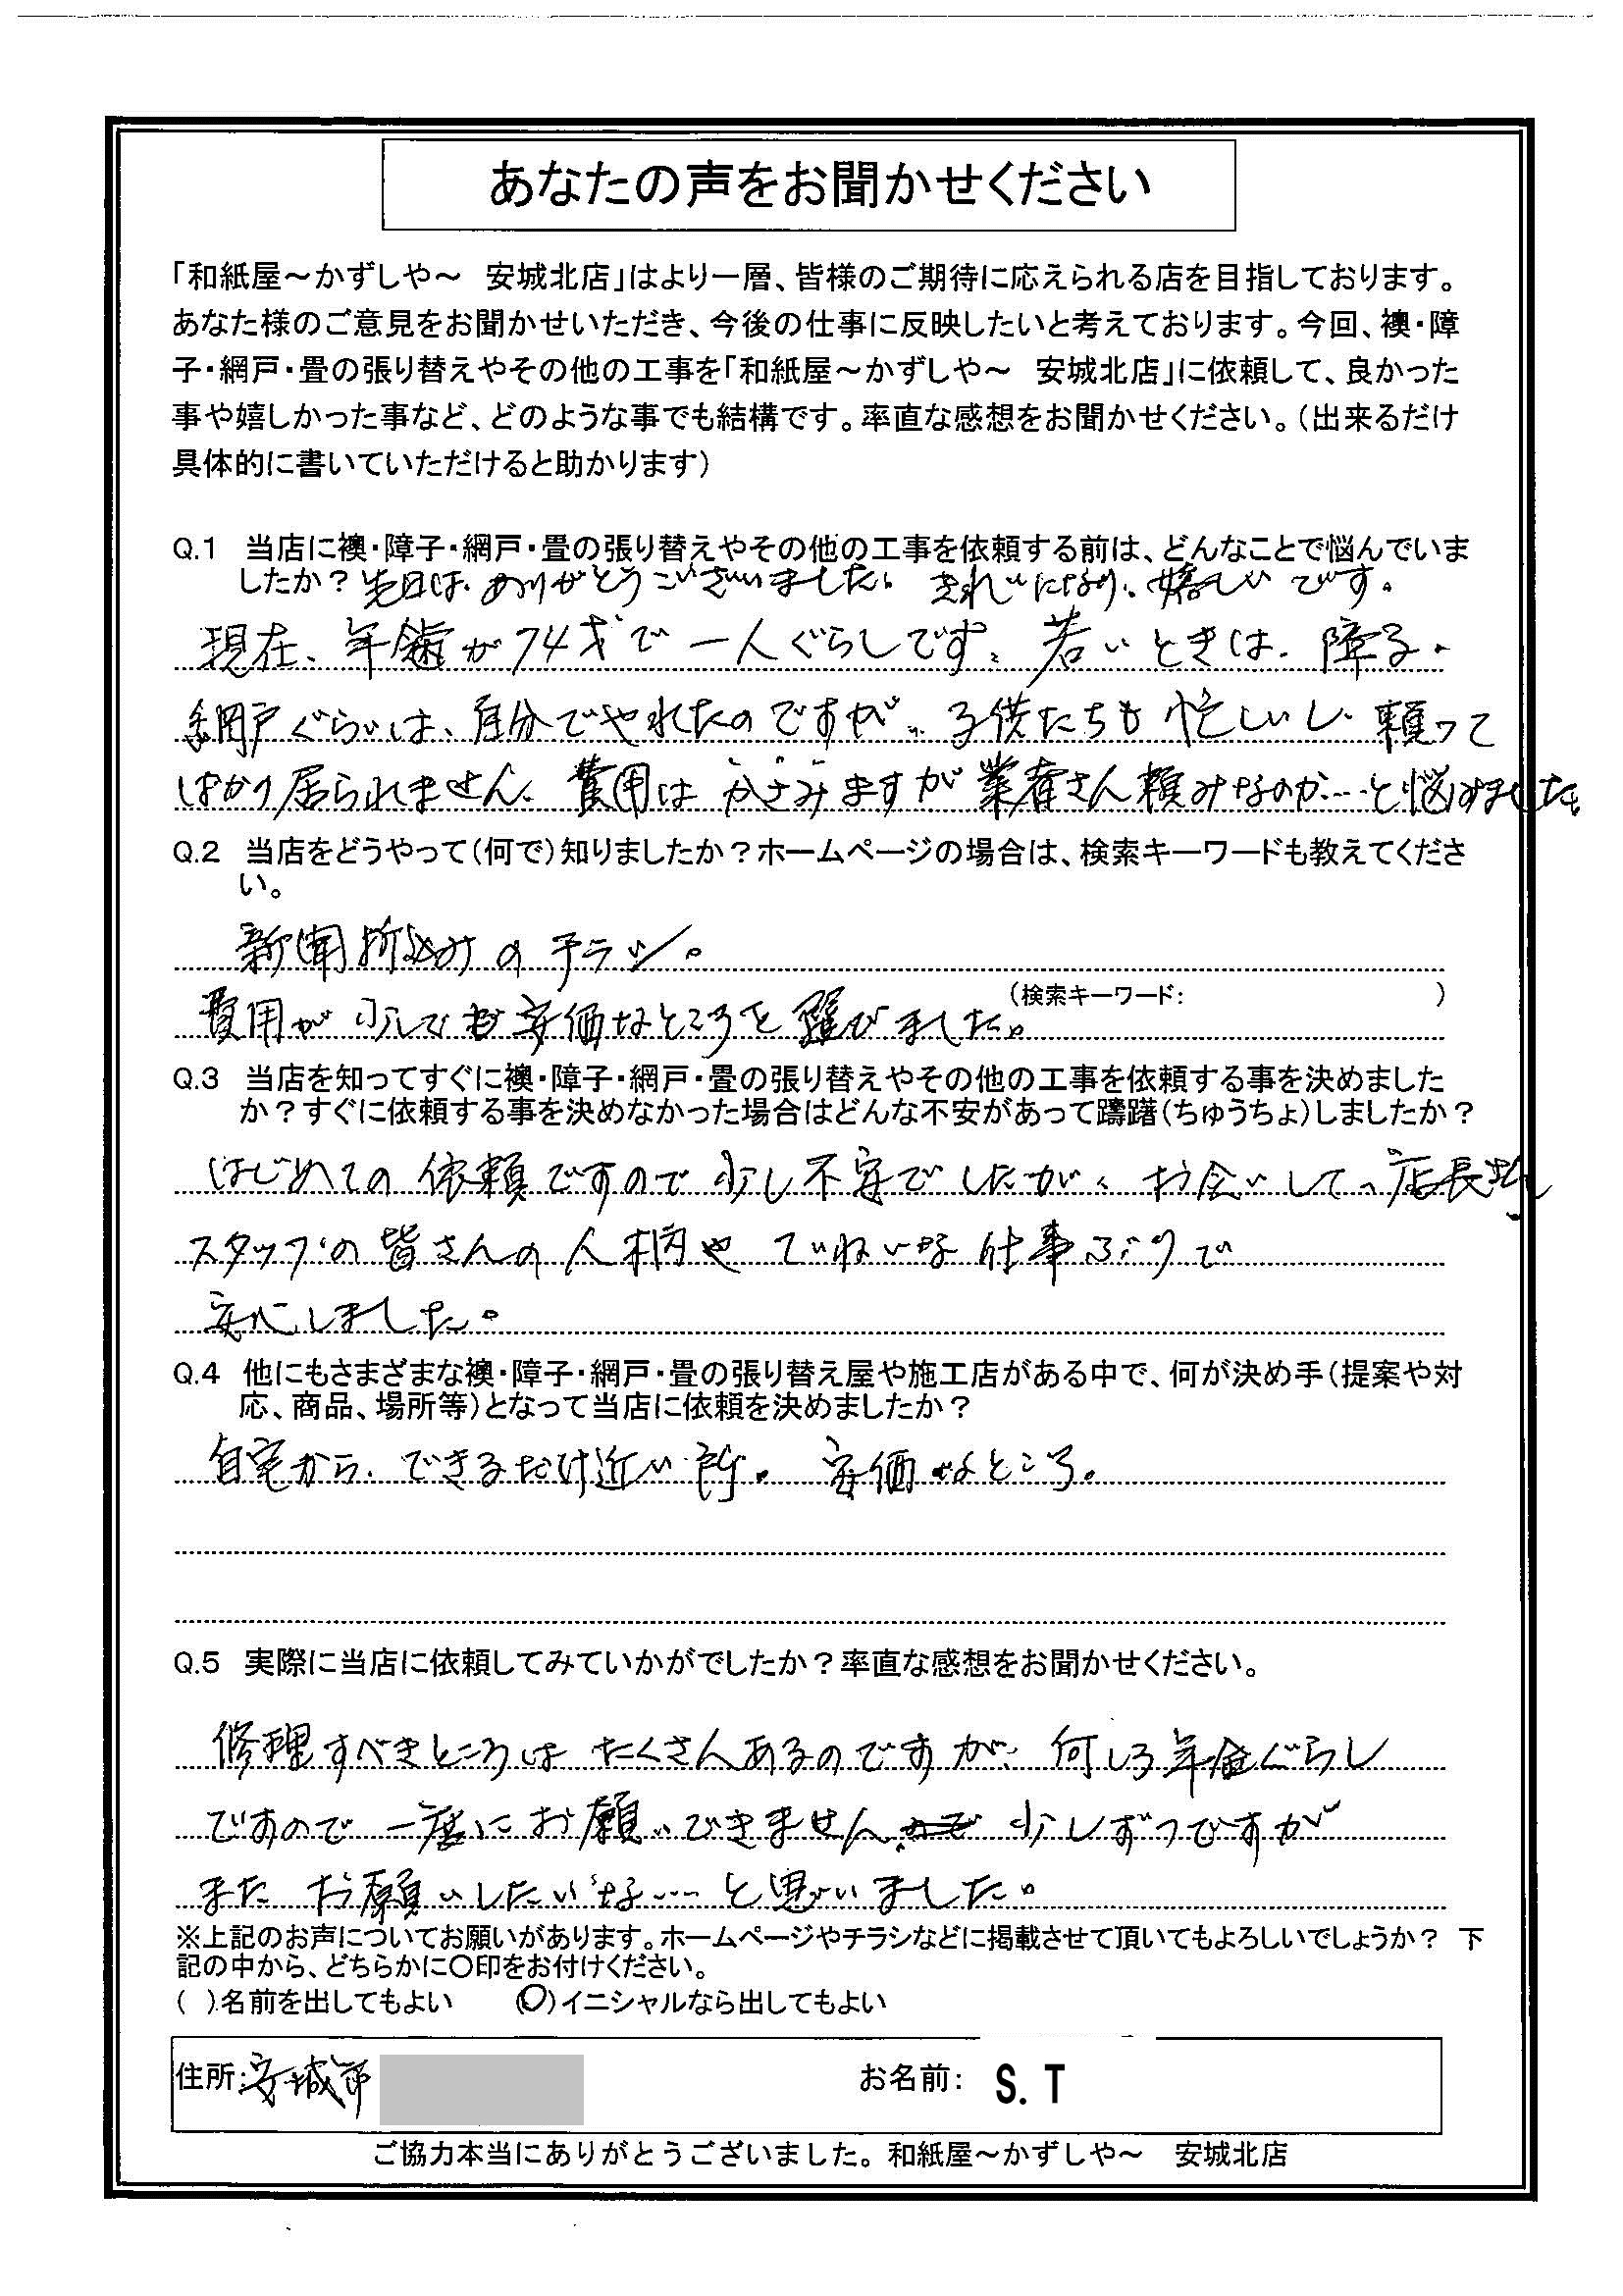 あなたの声をお聞かせください
「和紙屋～かずしや～　安城北店」はより一層、皆様のご期待に応えられる店を目指しております。
あなた様のご意見をお聞かせいただき、今後の仕事に反映したいと考えております。今回、襖・障
子・網戸・畳の張り替えやその他の工事を「和紙屋～かずしや～　安城北店」に依頼して、良かった
事や嬉しかった事など、どのような事でも結構です。率直な感想をお聞かせください。（出来るだけ
具体的に書いていただけると助かります）
Q.1　当店に襖・障子・網戸・畳の張り替えやその他の工事を依頼する前は、どんなことで悩んでいま
したか？先日は、ありがとうございました。きれいになり、嬉しいです。
現在、年齢が74才で一人ぐらしです。若いときは、障子、
網戸ぐらいは、自分でやれたのですが、子供たちも忙しいし、頼って
ばかり居られません、費用はかさみますが業者さん頼みなのか…と悩みました。
Q.2　当店をどうやって（何で）知りましたか？ホームページの場合は、検索キーワードも教えてくださ
い。
新聞折込みのチラシ。
（検索キーワード：　　　　　）
費用が少しでも安価なところを選びました。
Q.3　当店を知ってすぐに襖・障子・網戸・畳の張り替えやその他の工事を依頼する事を決めました
か？すぐに依頼する事を決めなかった場合はどんな不安があって躊躇（ちゅうちょ）しましたか？
はじめての依頼ですので少し不安でしたが、お会いして、店長さん
スタッフの皆さんの人柄やていねいな仕事ぶりで
安心しました。
Q.4　他にもさまざまな襖・障子・網戸・畳の張り替え屋や施工店がある中で、何が決め手（提案や対
応、商品、場所等）となって当店に依頼を決めましたか？
自宅から、できるだけ近い所。安価なところ。
Q.5　実際に当店に依頼してみていかがでしたか？率直な感想をお聞かせください。
修理すべきところはたくさんあるのですが、何しろ年金ぐらし
ですので一度にお願いできません。少しずつですが
またお願いしたいな…と思いました。
※上記のお声についてお願いがあります。ホームページやチラシなどに掲載させて頂いてもよろしいでしょうか？　下
記の中から、どちらかに〇印をお付けください。
（　）名前を出してもよい　　（〇）イニシャルなら出してもよい
住所：安城市　お名前：　S. T
ご協力本当にありがとうございました。和紙屋～かずしや～　安城北店